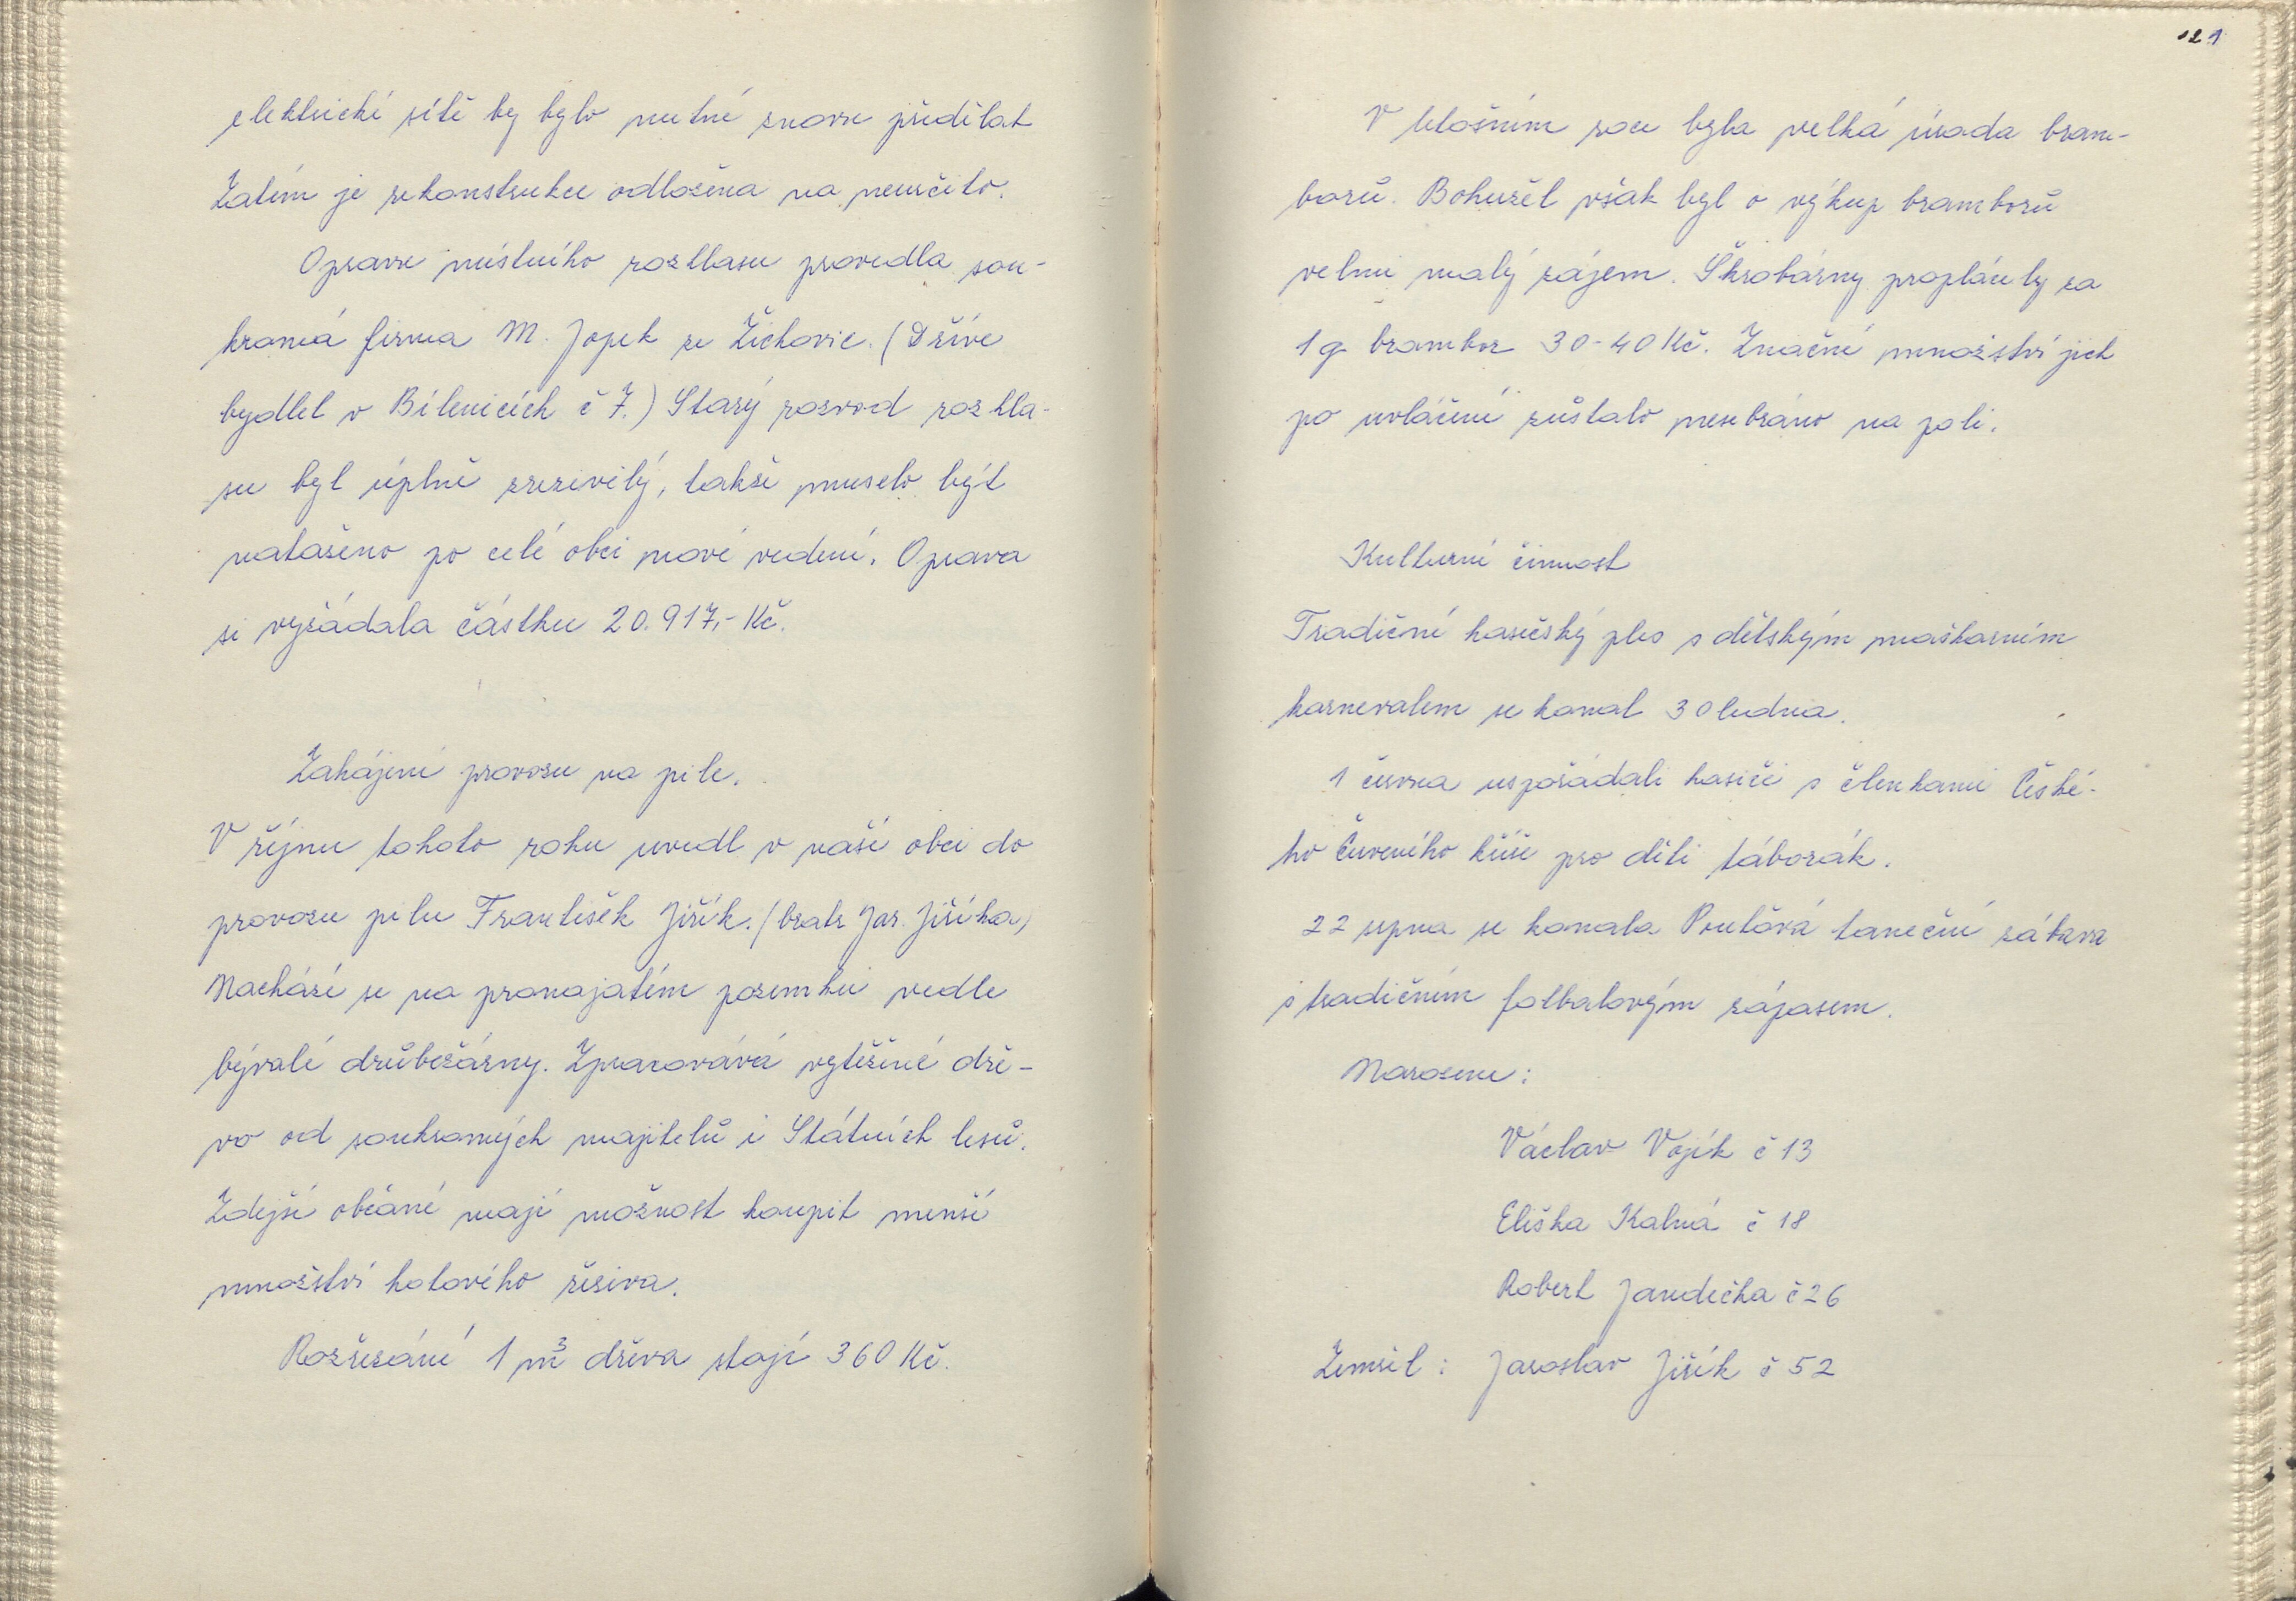 elektrické sítě by bylo nutné znovu předělat
Zatím je rekonstrukce odložena na neurčito.
Opravu místního rozhlasu provedla sou-
kromá firma M. Jopek ze Žichovic. (Dříve
bydlel v Bílenicích č 7.) Starý rozvod rozhla-
su byl úplně zrezivělý, takže muselo být
nataženo po celé obci nové vedení. Oprava
si vyžádala částku 20.917,- Kč.
Zahájení provozu na pile.
V říjnu tohoto roku uvedl v naší obci do
provozu pilu František Jiřík. (bratr Jar. Jiříka)
Nachází se na pronajatém pozemku vedle
bývalé drůbežárny. Zpracovává vytěžené dře-
vo od soukromých majitelů i Státních lesů.
Zdejší občané mají možnost koupit menší
množství hotového řeziva.
Rozřezání 1 m³ dřeva stojí 360 Kč.
121
V letošním roce byla velká úroda bram-
borů. Bohužel však byl o výkup bramborů
velmi malý zájem. Škrobárny proplácely za
1 q brambor 30-40 Kč. Značné množství jich
po uvláčení zůstalo nesebráno na poli.
Kulturní činnost
Tradiční hasičský ples s dětským maškarním
karnevalem se konal 30 ledna.
1 června uspořádali hasiči s členkami České-
ho Červeného kříže pro děti táborák.
22 srpna se konala Pouťová taneční zábava
s tradičním fotbalovým zápasem.
Narozeni:
Václav Vojík č 13
Eliška Kalná č 18
Robert Jandečka č 26
Zemřel: Jaroslav Jiřík č 52